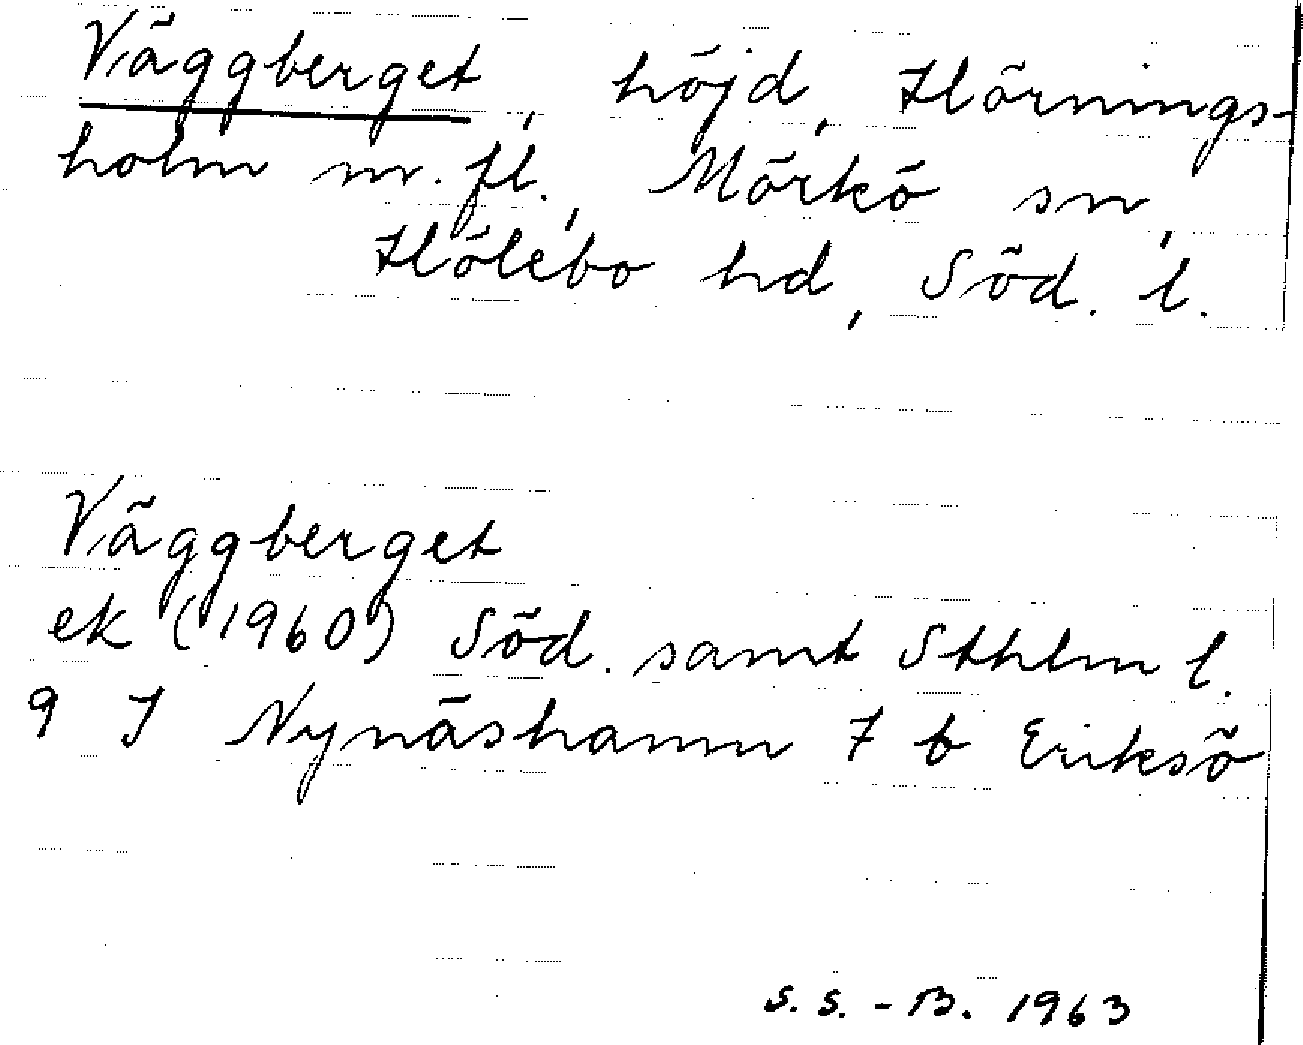 Väggberget, höjd, Hörnings-
holm m. fl., Mörkö sn,
Hölebo hd, Söd. l.
Väggberget
ek (1960) Söd. samt Sthlm l.
9 I Nynäshamn 7 b Eriksö
S. S. - B. 1963